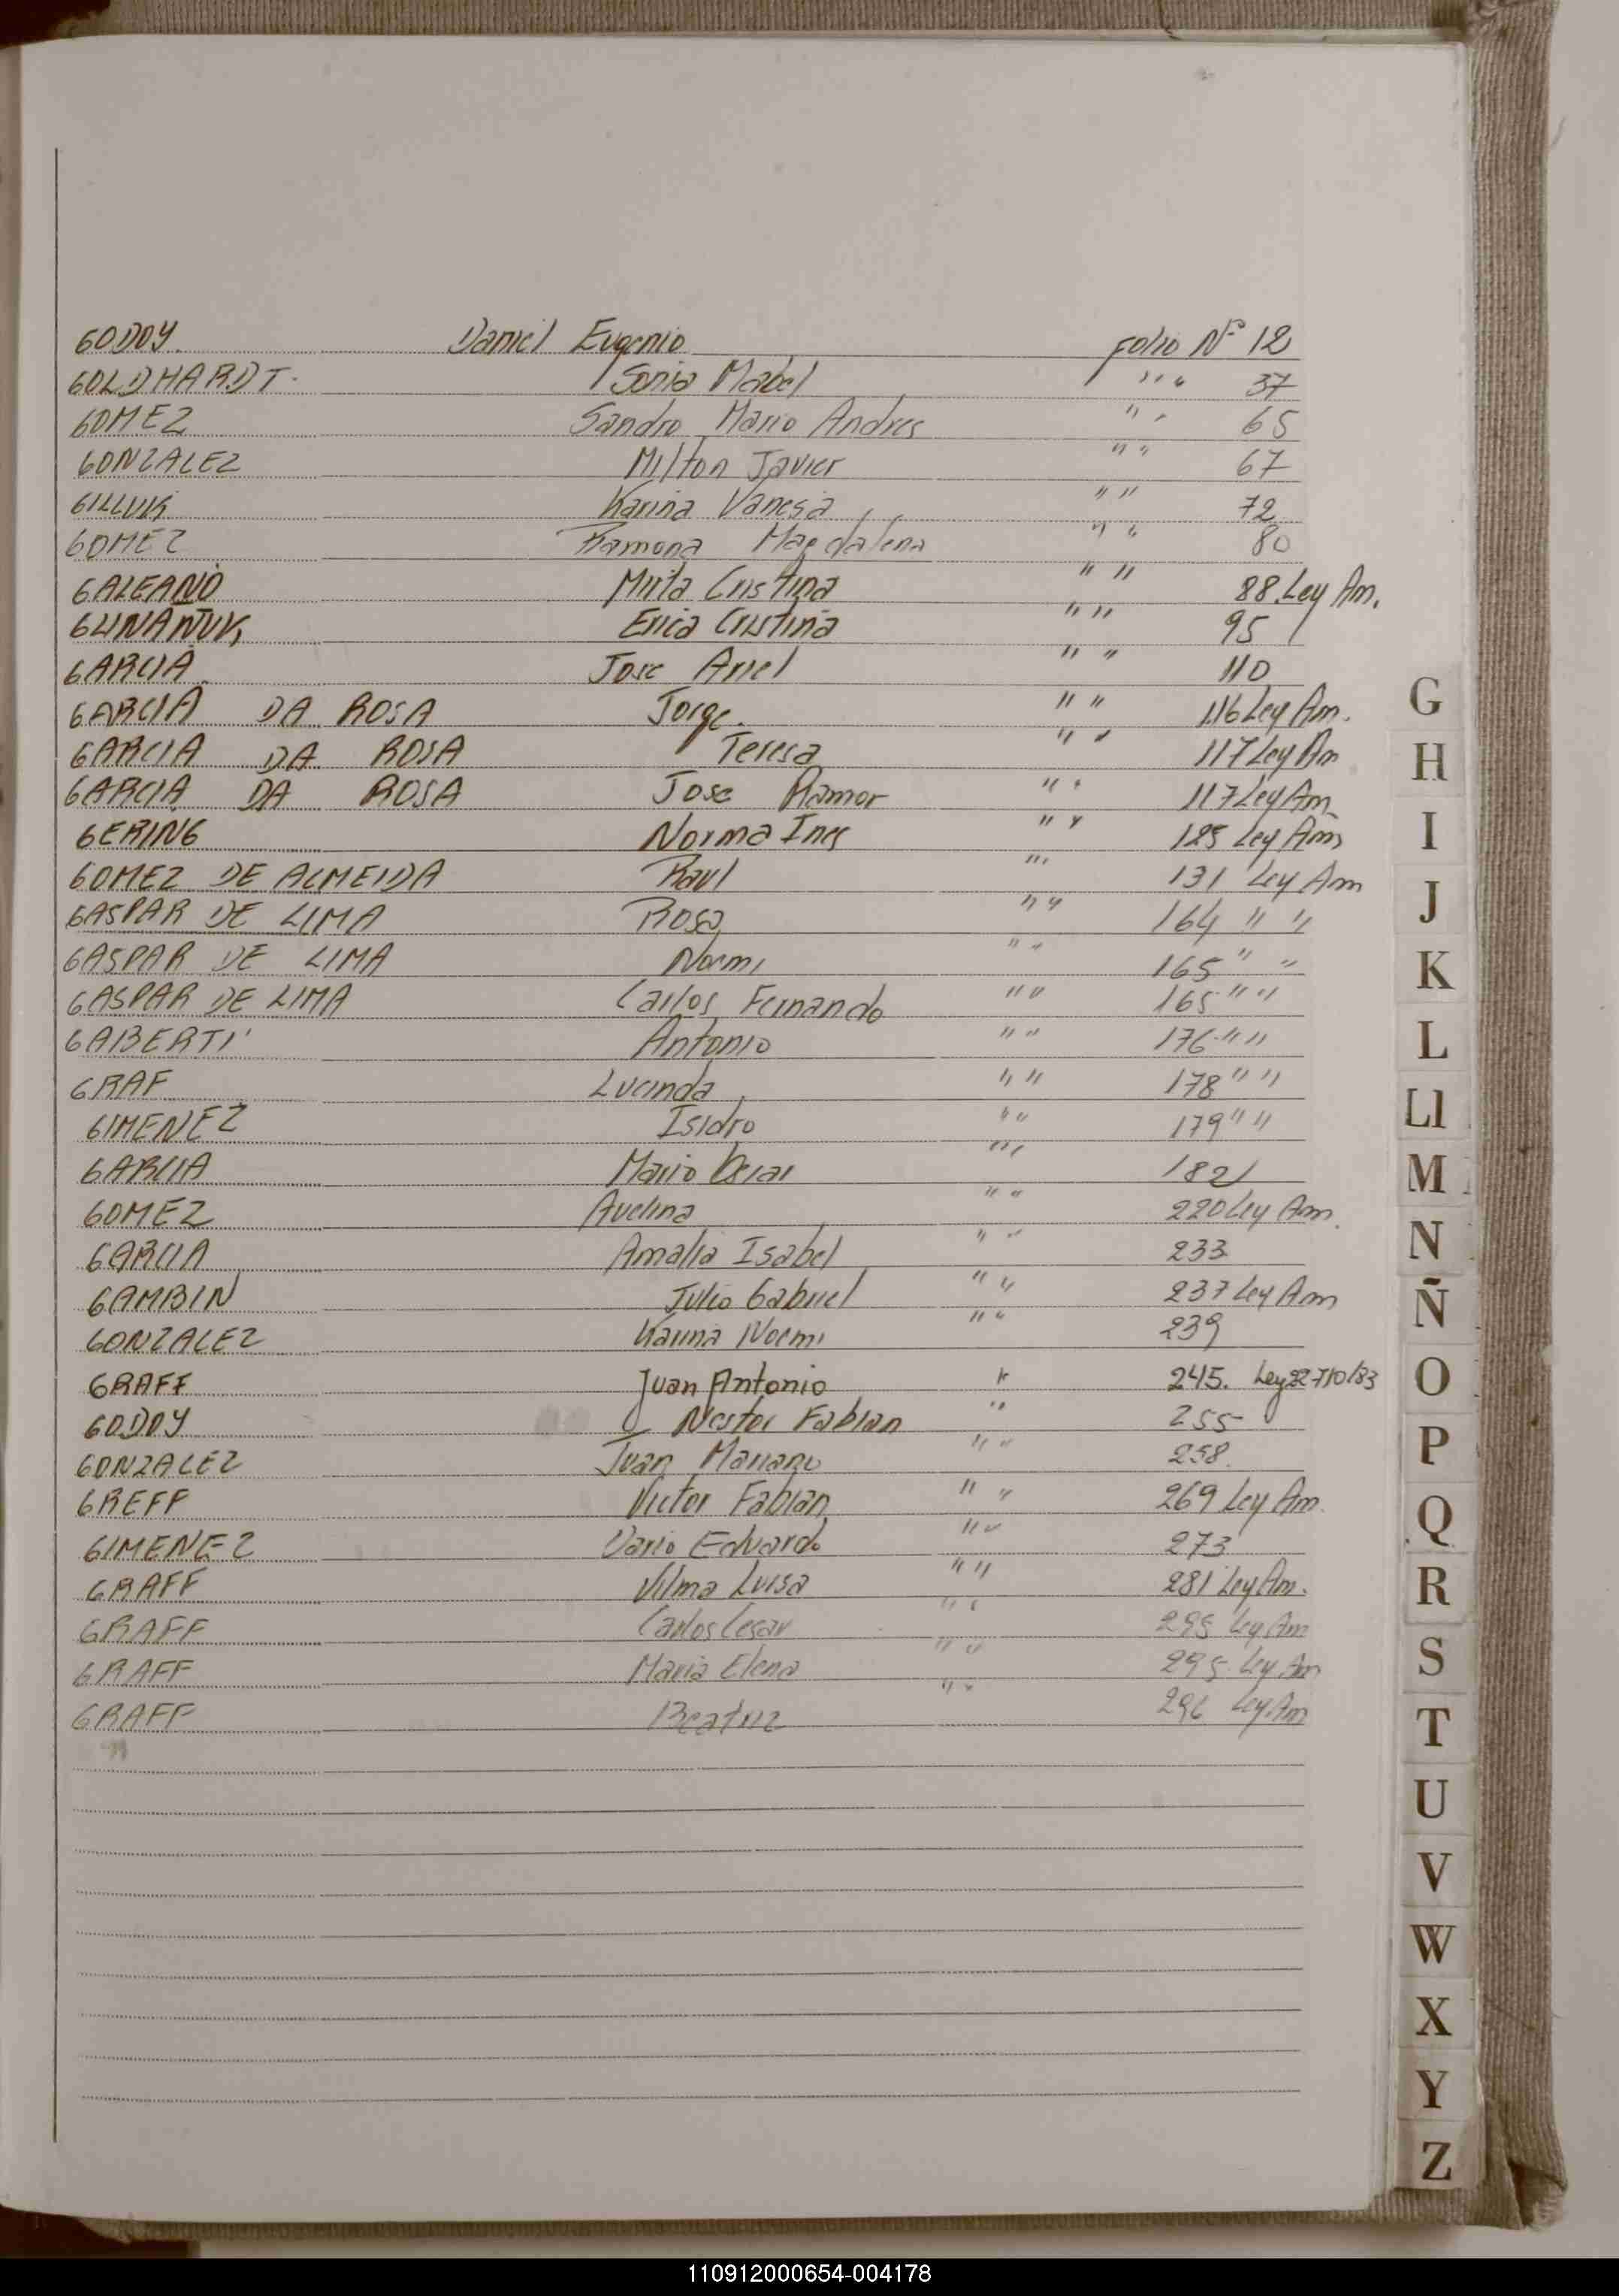 GODOY. Daniel Eugenio folio Nº 12
GOLDHARDT. Sonia Mabel " " " 37
GOMEZ Sandro Mario Andres " " 65
GONZALEZ Milton Javier " " 67
Karina Vanesa " " 72
GOMEZ Ramona Magdalena " " 80
GALEANO Mirta Cristina " " 88 Ley Am.
Erica Cristina " " 95
GARCIA Jose Ariel " " 110
GARCIA DA ROSA Jorge. " " 116 Ley Am.
GARCIA DA ROSA Teresa " " 117 Ley Am
GARCIA DA ROSA Jose Ramon " " 117 Ley Am
GERING Norma Ines " " 125 Ley Am
GOMEZ DE ALMEIDA Raul " " 131 Ley Am
GASPAR DE LIMA Rosa " " 164 " "
GASPAR DE LIMA Noemi " " 165 " "
GASPAR DE LIMA Carlos Fernando " " 165 " "
GABERTI Antonio " " 176 " "
GRAF Lucinda " " 178 " "
GIMENEZ Isidro " " 179 " "
GARCIA Mario " " 182
GOMEZ Avelina " " 220 Ley Am.
GARCIA Amalia Isabel " " 233
GAMBIN Julio Gabriel " " 237 Ley Am
GONZALEZ Karina Noemi " " 239
GRAFF Juan Antonio " 245. Ley 22710/83
GODOY Nestor Fabian " " 255
GONZALEZ Juan Mariano " " 258.
GREFF Victor Fabian " " 269 Ley Am.
GIMENEZ Dario Eduardo " " 273
GRAFF Vilma Luisa " " 281 Ley Am.
GRAFF Carlos Cesar " " 295 Ley Am
GRAFF Maria Elena " " 295 Ley Am
GRAFF Beatriz " " 296 Ley Am
G
H
I
J
K
L
Ll
M
N
Ñ
O
P
Q
R
S
T
U
V
W
X
Y
Z
110912000654-004178